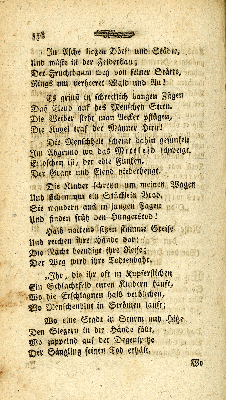 358
In Asche liegen Dörf' und Städte,
Und wüste ist der Felderbau;
Der Fruchtbaum weg von seiner Stätte,
Rings nur verheeret Wald und Au!
Es grinst in schrecklich bangen Zügen
Das Elend auf des Menschen Stirn.
Die Weiber sieht man Aecker pflügen,
Die Kugel traf der Männer Hirn!
Die Menschheit scheint dahin gesunken
Im Abgrund wo das Mitleid schweigt.
Erloschen ist, der edle Funken,
Der Gram und Elend niederbeugt.
Die Kinder schreyn um meinen Wagen
Und flehn nur ein Stücklein Brod.
Sie wandern auch in jungen Tagen
Und finden früh den Hungertod!
Halb nackend sitzen stumme Greise
Und reichen ihre Hände dar;
Die Nächt beendige ihre Reise;
Der Weg wird ihre Todtenbahr.
„Ihr, die ihr oft in Kupferstichen
Ein Schlachtfeld euren Kindern kauft,
Wo die Erschlagnen halb verblichen,
Wo Menschenblut in Strömen lauft;
Wo eine Stadt in Sturm und Hitze
Den Siegern in die Hände fällt,
Wo zappelnd auf der Degenspitze
Der Säugling seinen Tod erhält.
Wo